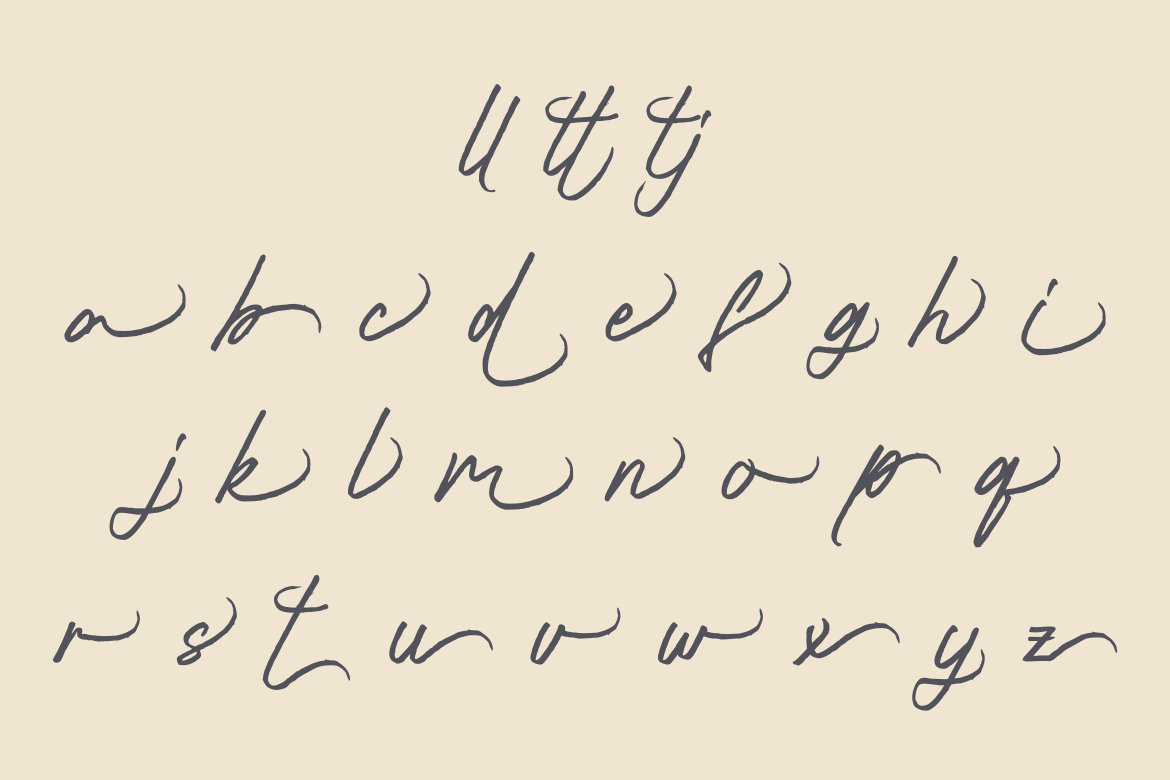 ll tt tj
a b c d e f g h i
j k l m n o p q
r s t u v w x y z